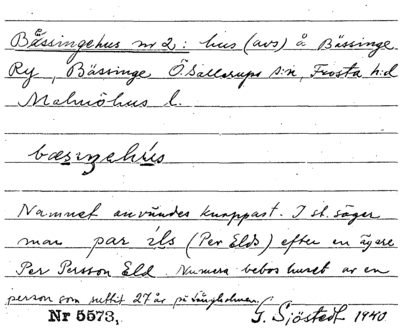 Båssingehus nr 2: hus (avs) å Bässinge
Ry, Bässinge Ö. Sallerups s:n, Frosta h:d
Malmöhus l.
bæsıŋehu̇s
Namnet användes knappast. I st. säger
man par ı̇ls (Per Elds) efter en ägare
Per Persson Eld. Numera bebos huset av en
person som suttit 27 år på Långholmen.
Nr 5573, G. Sjöstedt 1940